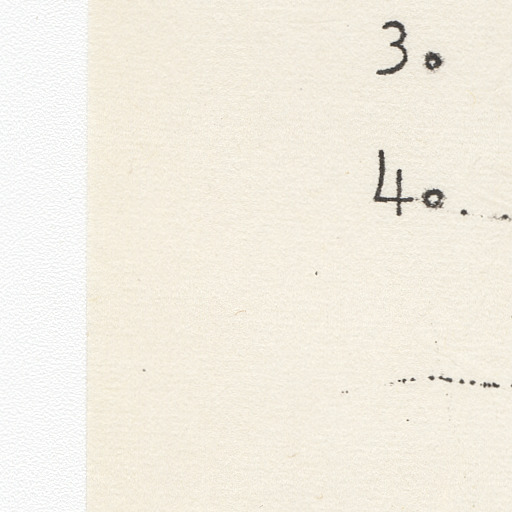 3.
4.